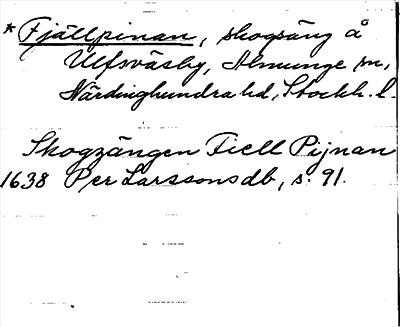 * Fjällpinan, skogsäng å
Ulfsväsby, Almunge sn,
Närdinghundra hd, Stockh. l.
Skogzängen Fiell Pijnan
1638 Per Larssons db, s. 91.